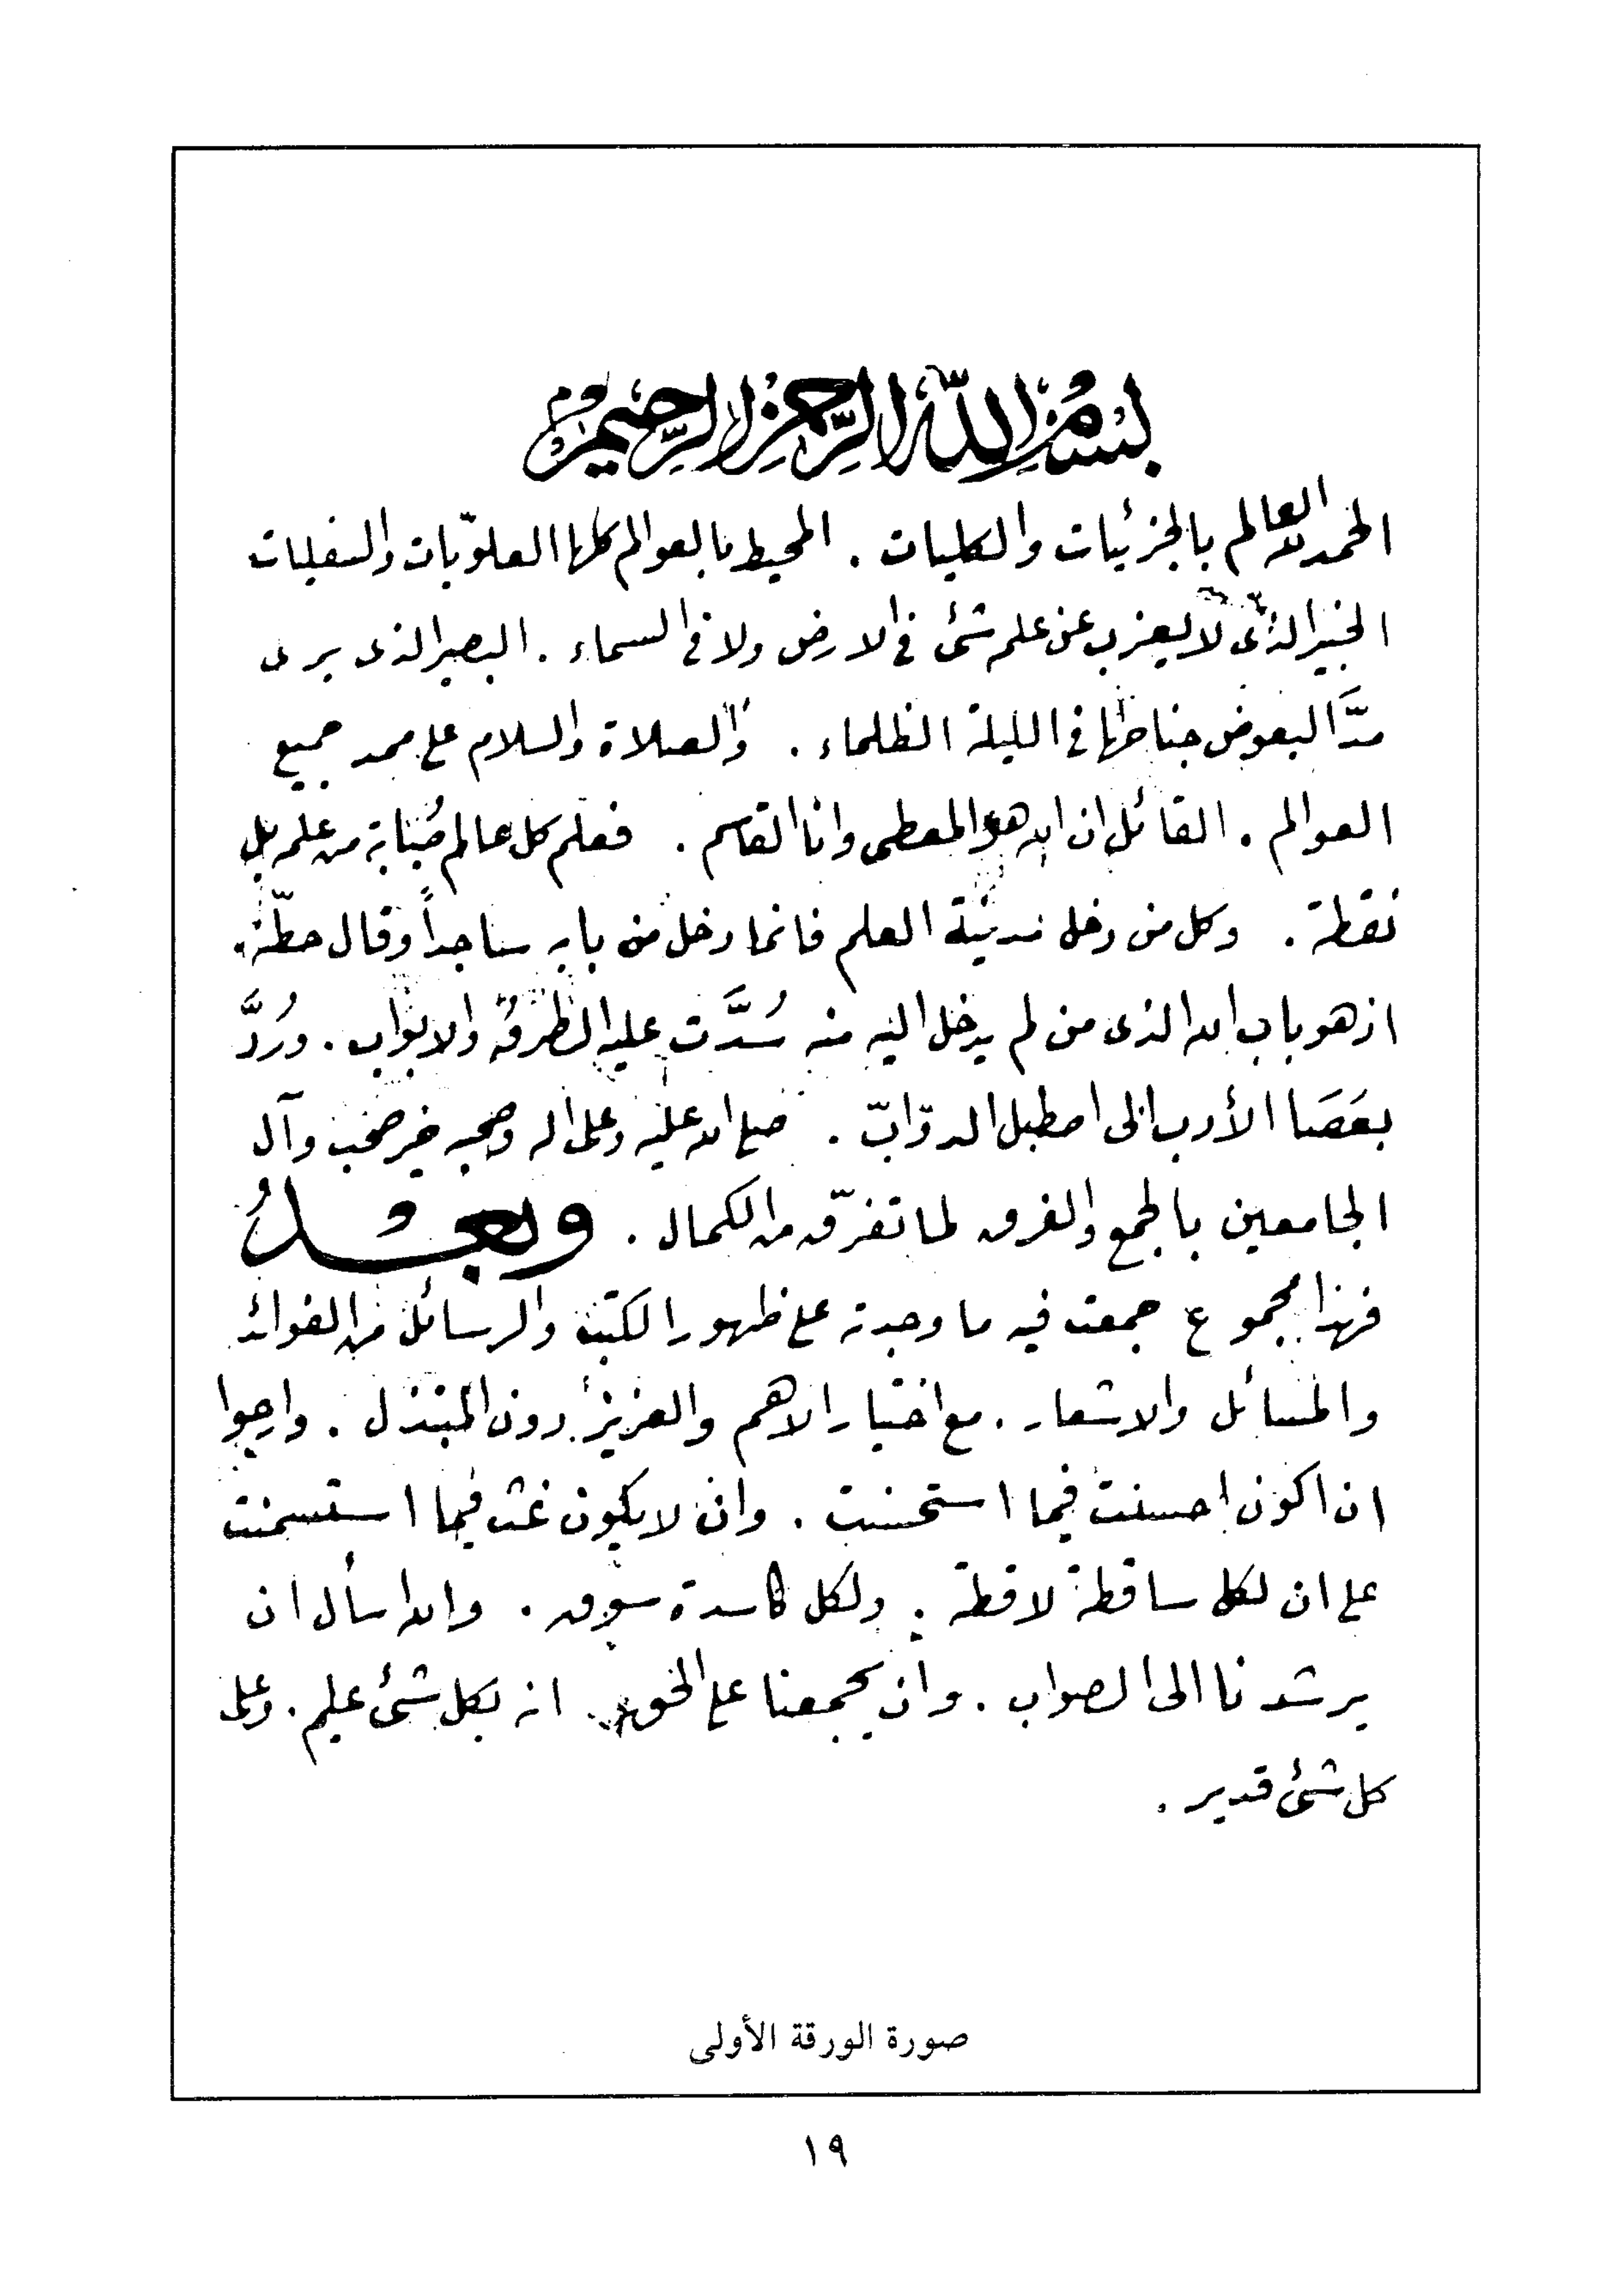 بسم الله الرحمن الرحيم
الحمد لله العالم بالجزئيات والكليات . المحيط بالعوالم كلها العلويّات والسفليات
الخبير الذى لا يعزب عن علمه شئ فى الارض ولا فى السماء . البصير الذى يرى
مدَّ البعوض جناحها فى الليلة الظلماء . والصلاة والسلام على ممد جميع
العوالم . القائل ان الله هو المعطى وانا القاسم . فعلم كل عالم صُبابة من علمه بل
نقطة . وكل من دخل مدينة العلم فانما دخل من بابه ساجداً وقال حطّة .
اذ هو باب الله الذى من لم يدخل اليه منه سُدَّت عليه الطرق والابواب . ورُدَّ
بعَصَا الأدب الى اصطبل الدوّابّ . صلى الله عليه وعلى اله وصحبه خير صحب وآل
الجامعين بالجمع والفرق لما تفرّق من الكمال . وبعدُ
فهذا مجموع جمعت فيه ما وجدته على ظهور الكتب والرسائل من الفوائد
والمسائل والاشعار . مع اختيار الاهم والعزيز دون المبتذل . وارجوا
ان اكون احسنت فيما استحسنت . وان لا يكون غث فيما استسمنت
على ان لكل ساقطة لاقطة . ولكل كاسدة سوق . والله اسأل ان
يرشدنا الى الصواب . وان يجمعنا على الحق . انه بكل شئ عليم . وعلى
كل شئ قدير .
صورة الورقة الأولى
١٩